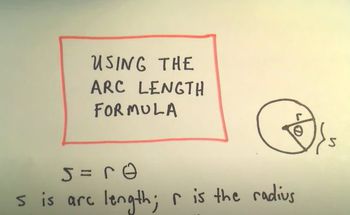 USING THE
ARC LENGTH
FORMULA
r
θ
s
s = r θ
s is arc length; r is the radius